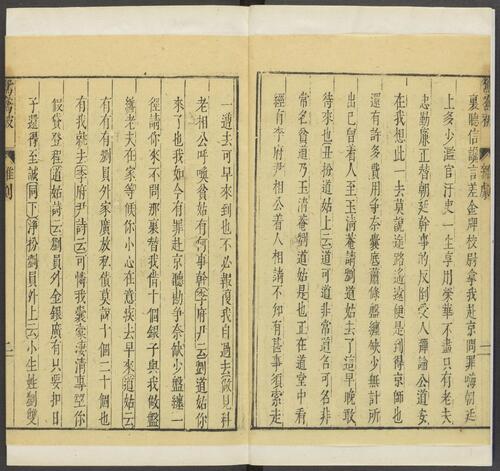 鴛鴦被 雜劇 一
裏聽信讒言差金牌校尉拿我赴京問罪嗨朝廷
上多少濫官汙吏一生享用榮華不盡只有老夫
忠勤廉正替朝廷幹事的反倒受人彈論公道安
在我想此一去莫說途路遙遠便是到得京師也
還有許多費用爭奈囊底蕭條盤纏缺少無計所
出已曾着人至玉清菴請劉道姑去了這早晚敢
待來也丑扮道姑上云道可道非常道名可名非
常名貧道乃玉清菴劉道姑是也正在道堂中看
經有李府尹相公着人相請不知有甚事須索走
一遭去可早來到也不必報復我自過去做見科
老相公呼喚貧姑有何事幹李府尹云劉道姑你
來了也我如今有罪赴京聽勘爭奈缺少盤纏一
徑請你來不問那裏替我借十個銀子與我做盤
纏老夫在家等候你小心在意疾去早來道姑云
有有有劉員外家廣放私債莫說十個二十個也
有我就去李府尹詩云可憐我囊橐淒清專望你
假貸登程道姑詩云劉員外金銀廣有只要把日
子還得至誠同下淨扮劉員外上云小生姓劉雙
鴛鴦被 雜劇 二